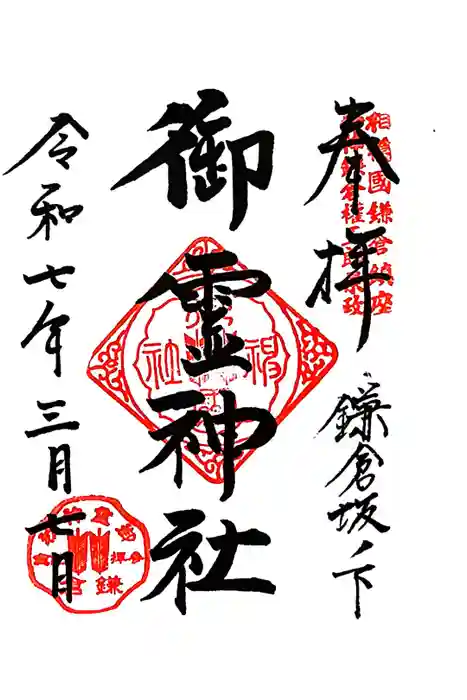 相模國鎌倉鎮座
奉拝
鎌倉坂ノ下
御霊神社
令和七年三月七日